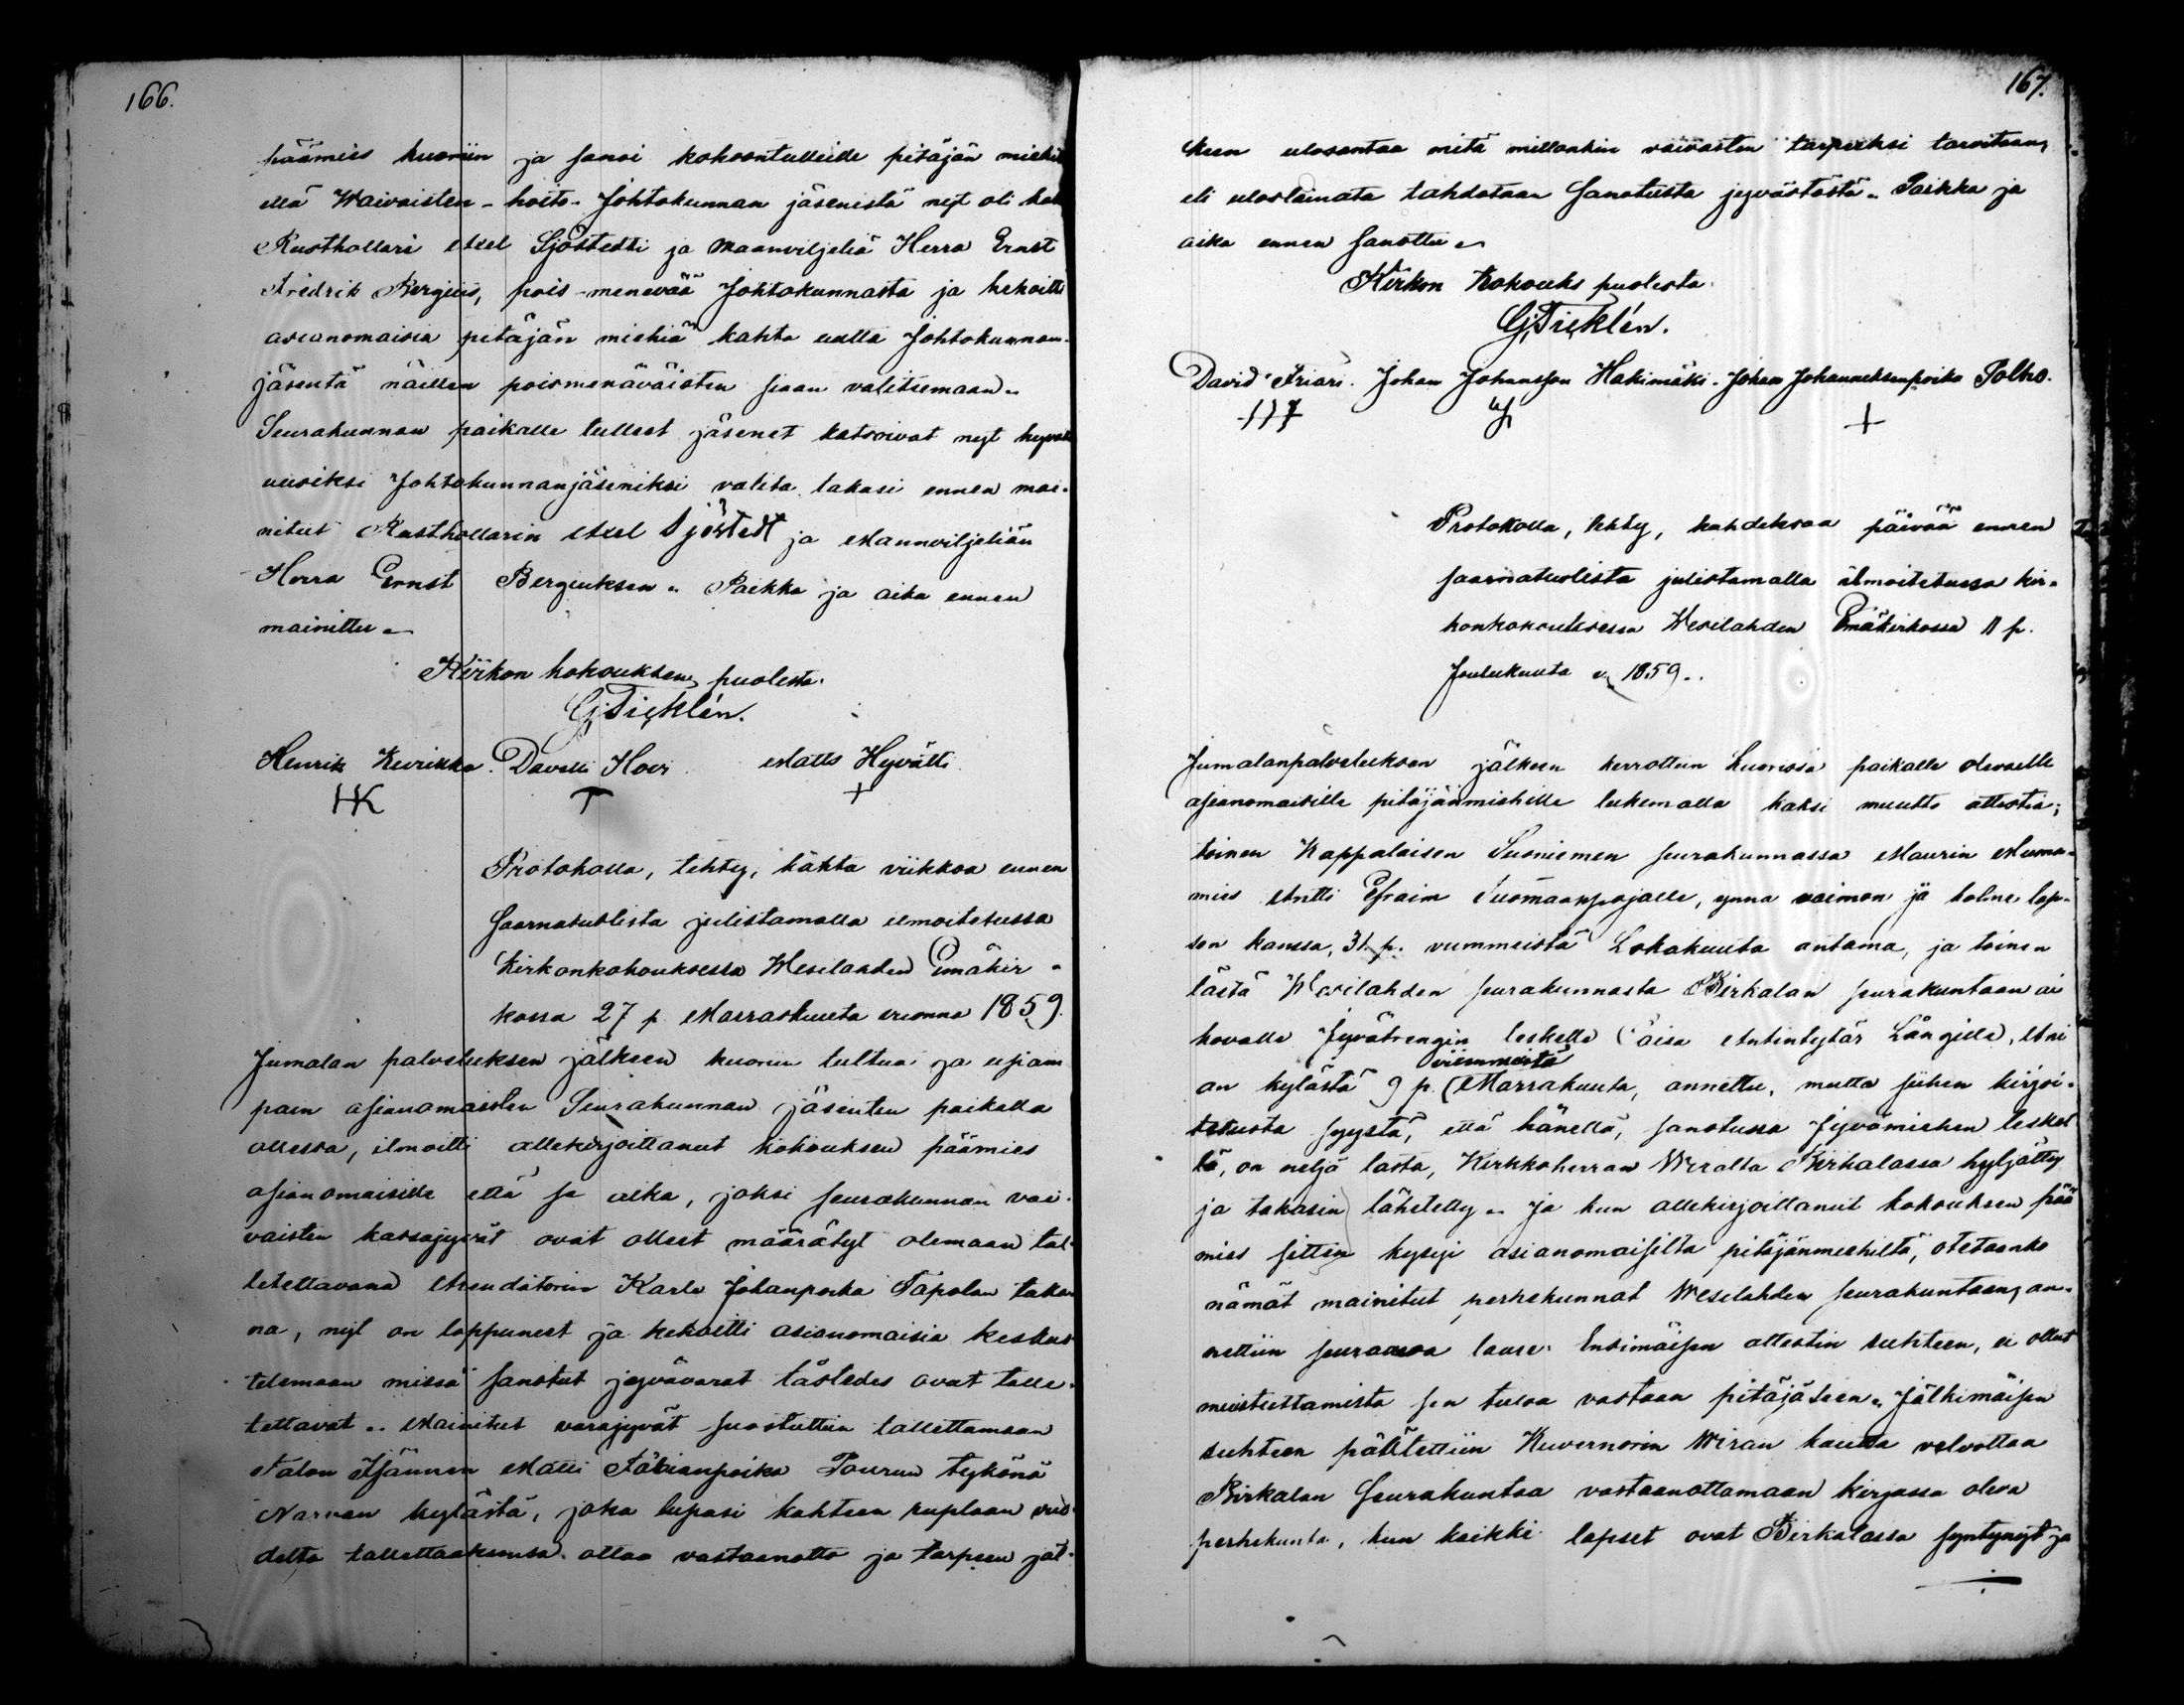 166.
päämies kuoriin ja sanoi kokoontulleille pitäjän miehil
että Waivaisten-hoito-Johtokunnan jäsenistä nyt oli
Rusthollari Axel Sjöstedti ja Maanviljeliä Herra Ernst
Fredrik Bergius, pois-menevää Johtokunnasta ja kehoitti
asianomaisia pitäjän miehiä kahta uutta Johtokunnan-
jäsentä näitten poismenäväisten siaan valitsemaan.
Seurakunnan paikalle tulleet jäsenet katsoivat nyt hyväk
uusiksi Johtokunnanjäseniksi valita takasi ennen mai-
nitut Rusthollarin Axel Sjöstedt ja Maanviljeliän
Herra Ernst Bergiuksen. Paikka ja aika ennen
mainittu.
Kirkon kokouksen puolesta.
G. Ticklén.
Henrik Keurikka. Davetti Hovi Matts Hyvätti.
HK T +
Protokolla, tehty, kahta viikkoa ennen
saarnatuolista julistamalla ilmoitetussa
Kirkonkokouksessa Wesilahden Emäkir-
kossa 27 p. Marraskuuta vuonna 1859.
Jumalan palveluksen jälkeen kuoriin tultua ja usiam
pain asianomaisten Seurakunnan jäsenten paikalla
ollessa, ilmoitti allekirjoittanut kokouksen päämies
asianomaisille että se aika, joksi seurakunnan vai-
vaisten kassajyvät ovat olleet määrätyt olemaan tal-
letettavana Arenditorin Karle Johanpoika Tapolan taka-
na, nyt on loppunut ja kehoitti asianomaisia keskus
telemaan missä sanotut jyvävarat tästedes ovat talle-
tettavat. Mainitut varajyvät suostuttiin tallettamaan
Talon Isännän Matti Fabianpoika Pourun tykönä
Narvan kylästä, joka lupasi kahteen ruplaan vuo-
delta tallettaaksensa ottaa vastaanotto ja tarpeen jäl-
167.
keen ulosantaa mitä milloinkin vaivasten tarpeeksi tarvitaan,
eli uloslainata tahdotaan sanotusta jyvästöstä. Paikka ja
aika ennen sanottu.
Kirkon Kokouks puolesta.
G. Ticklén.
David Friari. Johan Johansson Hakimäki. Johan Johanneksenpoika Polho.
+
Protokolla, tehty, kahdeksaa päivää ennen
saarnatuolista julistamalla ilmoitetussa kir-
konkokouksessa Wesilahden Emäkirkossa 11 p.
Joulukuuta v. 1859.
Jumalanpalveluksen jälkeen kerrottiin kuorissa paikalle olevaille
asianomaisille pitäjänmiehille lukemalla kaksi muutto attestia;
toinen Kappalaisen Suoniemen seurakunnassa Maurin
mies Antti Efraim Suomaappajalle, ynnä vaimon ja kolme lap-
sen kanssa, 31. p. viimmeistä Lokakuuta antama, ja toinen
tästä Wesilahden seurakunnasta Birkalan seurakuntaan ai
kovalle Jyvätrengin leskelle Caisa Antintytär Långille,
an kylästä 9 p. viimmeistä Marrakuuta, annettu, mutta siihen kirjoi-
tetusta syystä, että hänellä, sanotussa Jyvämiehen leskel
lä, on neljä lasta, Kirkkoherran Wiralta Birkalassa hyljätty
ja takasin lähetetty. Ja kun allekirjoittanut kokouksen pää
mies sitten kysyi asianomaisilta pitäjänmiehiltä, otetaanko
nämät mainitut perhekunnat Wesilahden seurakuntaan, an-
nettiin seuraava lause: Ensimäisen attestin suhteen, ei ollut
muistuttamista sen tuloa vastaan pitäjäseen. Jälkimäisen
suhteen päätettiin Kuvernörin Wiran kautta velvottaa
Birkalan Seurakuntaa vastaanottamaan kirjassa oleva
perhekunta, kun kaikki lapset ovat Birkalassa syntynyt ja